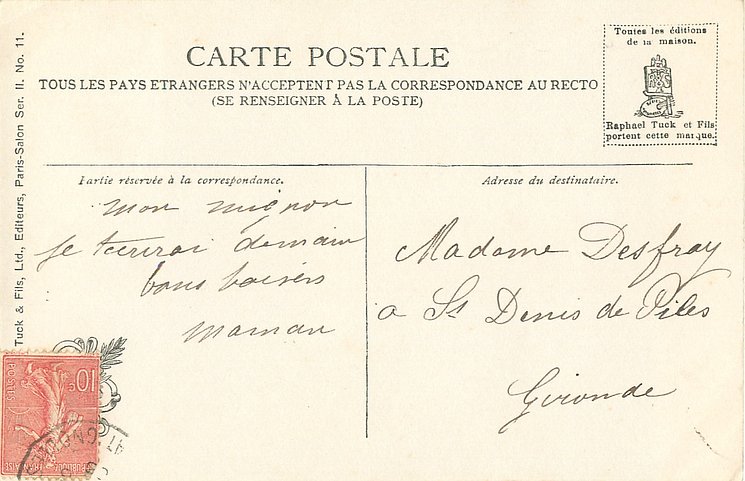 CARTE POSTALE
TOUS LES PAYS ETRANGERS N'ACCEPTENT PAS LA CORRESPONDANCE AU RECTO
(SE RENSEIGNER À LA POSTE)
Toutes les éditions
de la maison.
Raphael Tuck et Fils
portent cette marque.
Tuck & Fils, Ltd., Editeurs, Paris-Salon Ser. II. No. 11.
Partie réservée à la correspondance.
mon mignon
je t'écrirai demain
bons baisers
maman
Adresse du destinataire.
Madame Desfray
a St Denis de Piles
Gironde
10c
POSTES
REPUBLIQUE FRANÇAISE